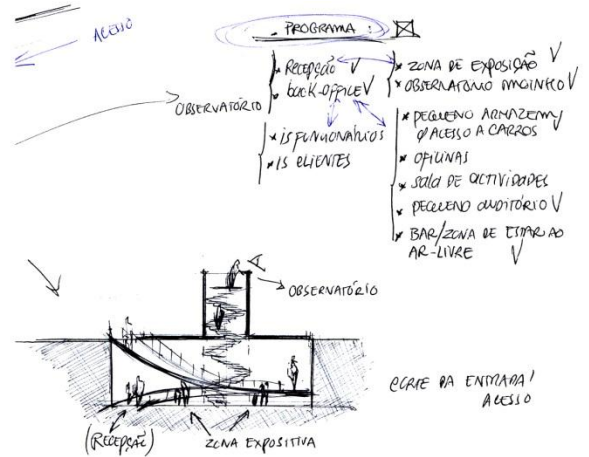 ACESSO
PROGRAMA
* RECEPÇÃO V
* BACK-OFFICE V
OBSERVATÓRIO
* IS FUNCIONÁRIOS
* IS CLIENTES
* ZONA DE EXPOSIÇÃO V
* OBSERVATÓRIO V
* PEQUENO ARMAZEM
P/ ACESSO A CARROS
* OFICINAS
* SALA DE ACTIVIDADES
* PEQUENO AUDITÓRIO V
* BAR/ZONA DE ESTAR AO
AR-LIVRE V
OBSERVATÓRIO
CORTE DA ENTRADA/
ACESSO
(RECEPÇÃO)
ZONA EXPOSITIVA